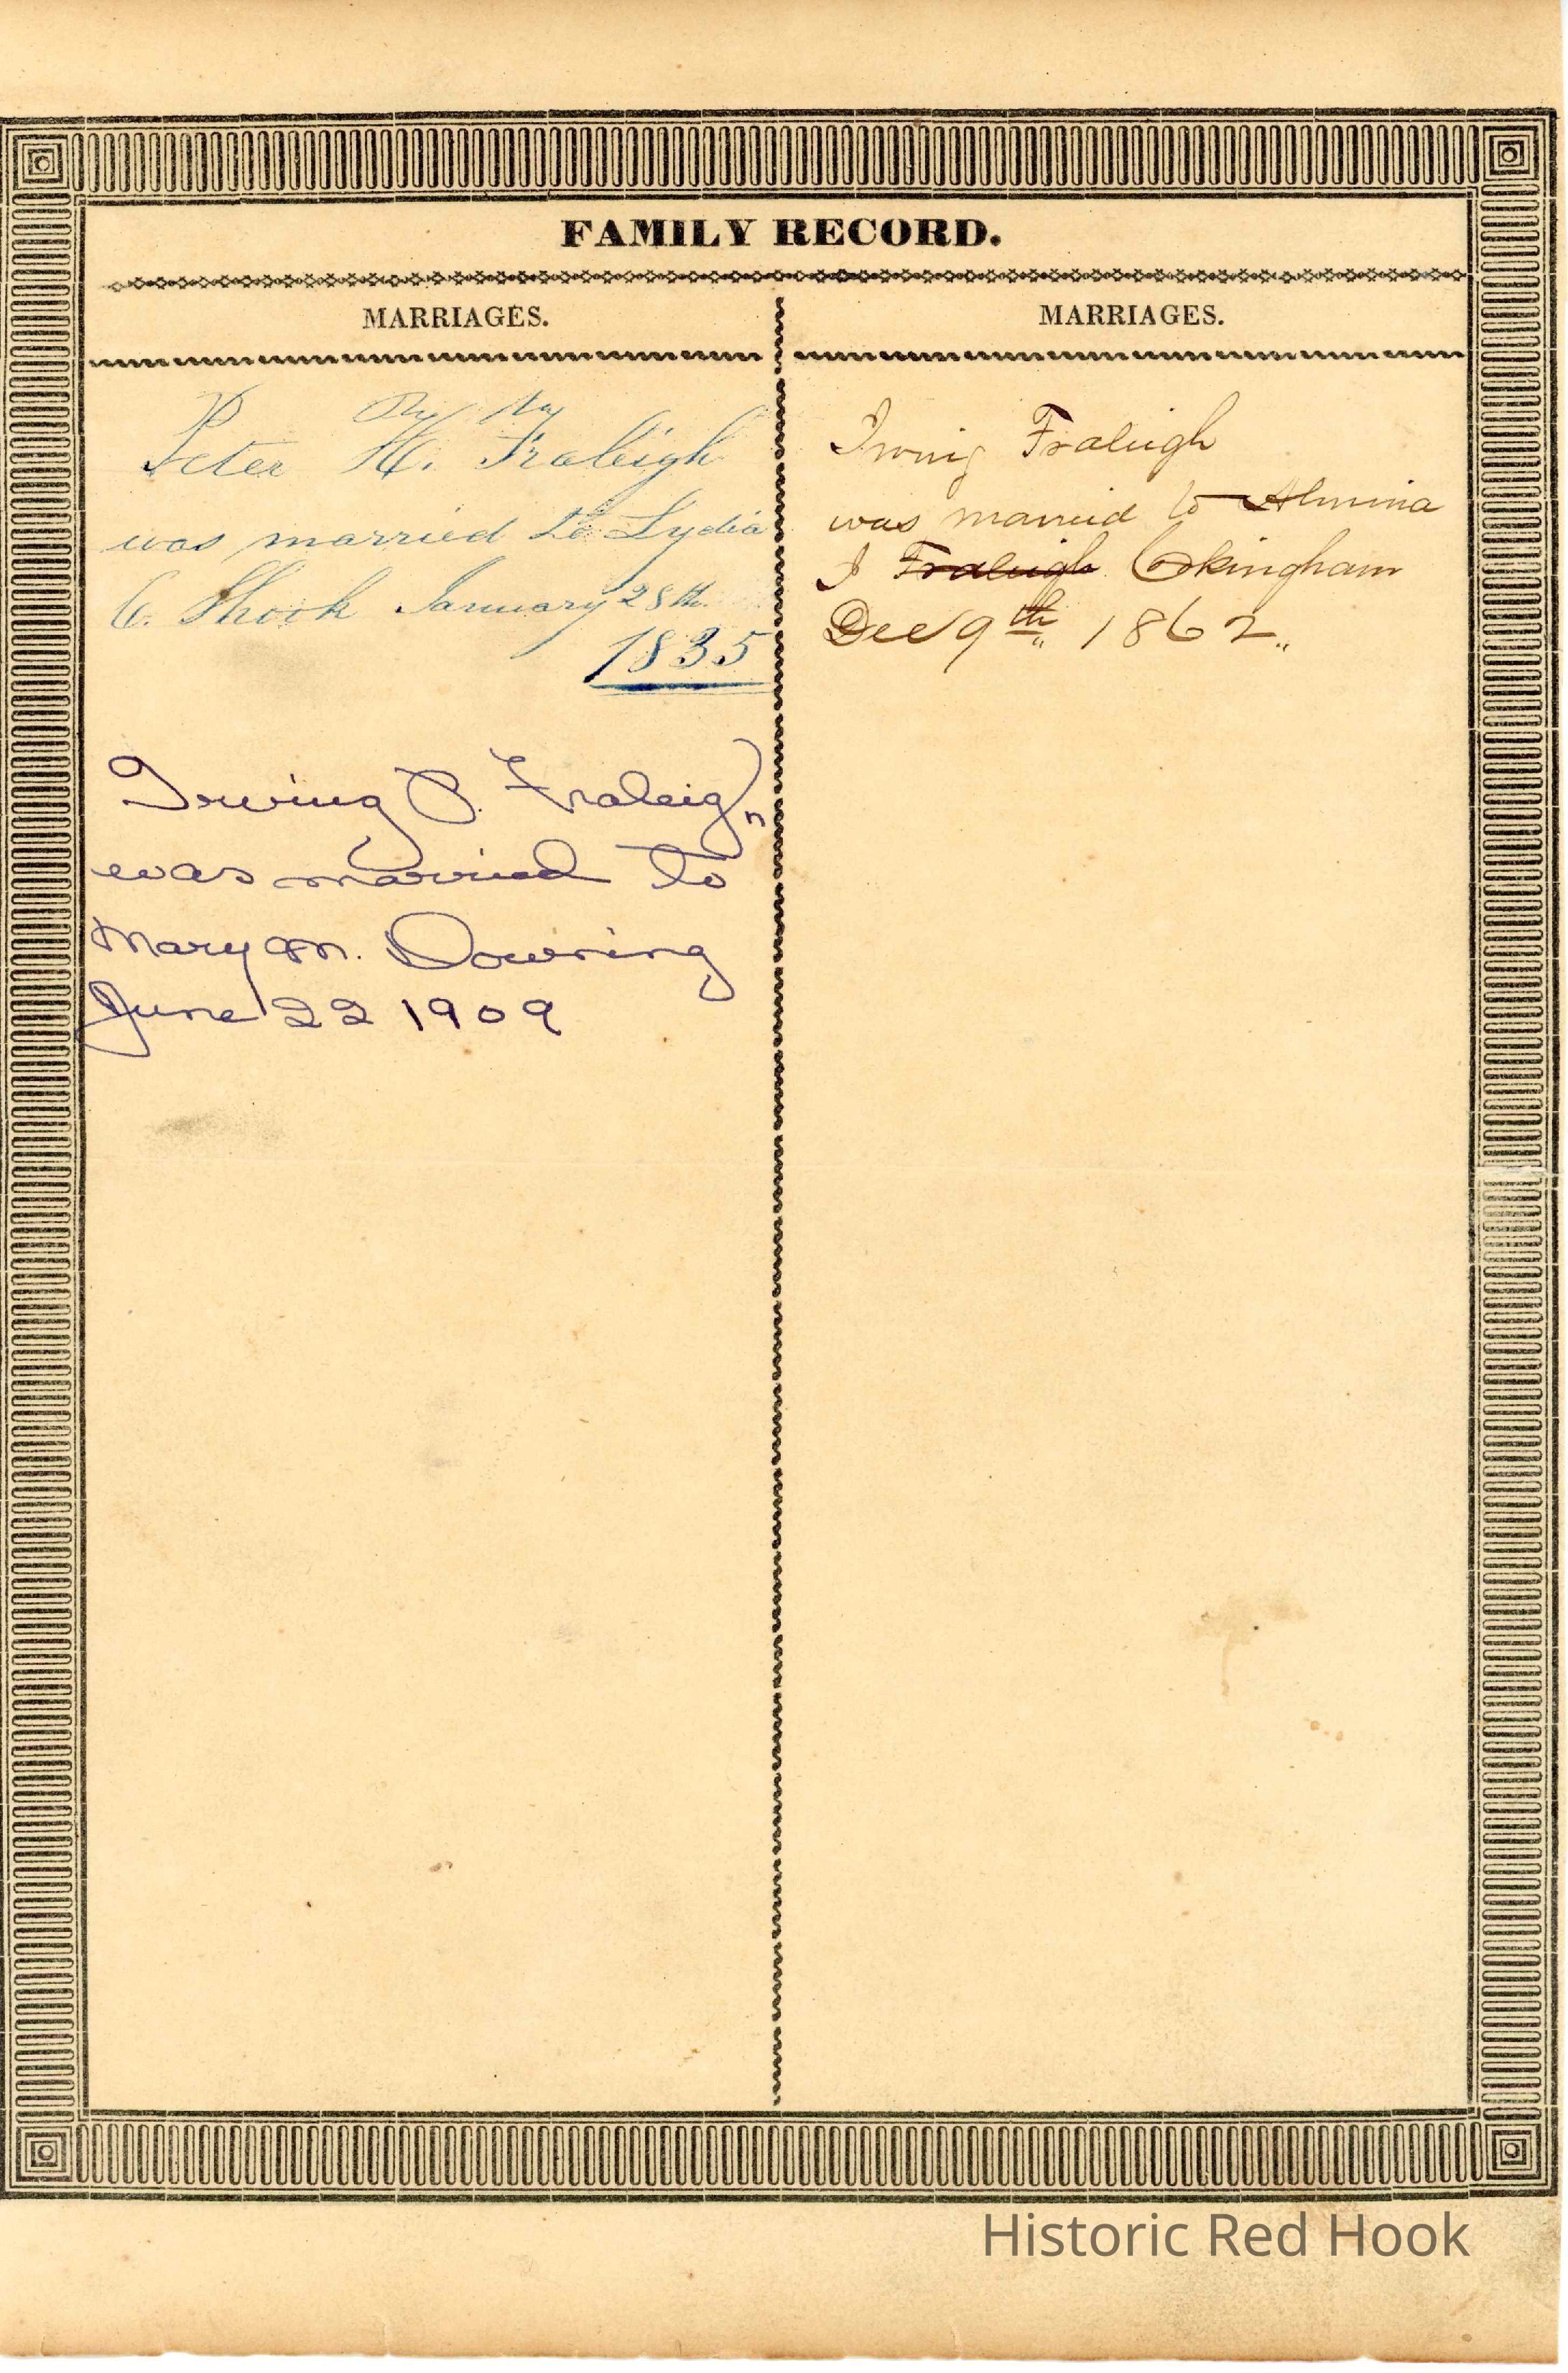 FAMILY RECORD.
MARRIAGES.
Peter H. Fraleigh
was married to Lydia
C. Shook January 28th.
1835
Irving P. Fraleigh
was married to
Mary M. Downing
June 22 1909
MARRIAGES.
Irving Fraleigh
was married to Almina
J Fraleigh Cokingham
Dec 9th 1862
Historic Red Hook